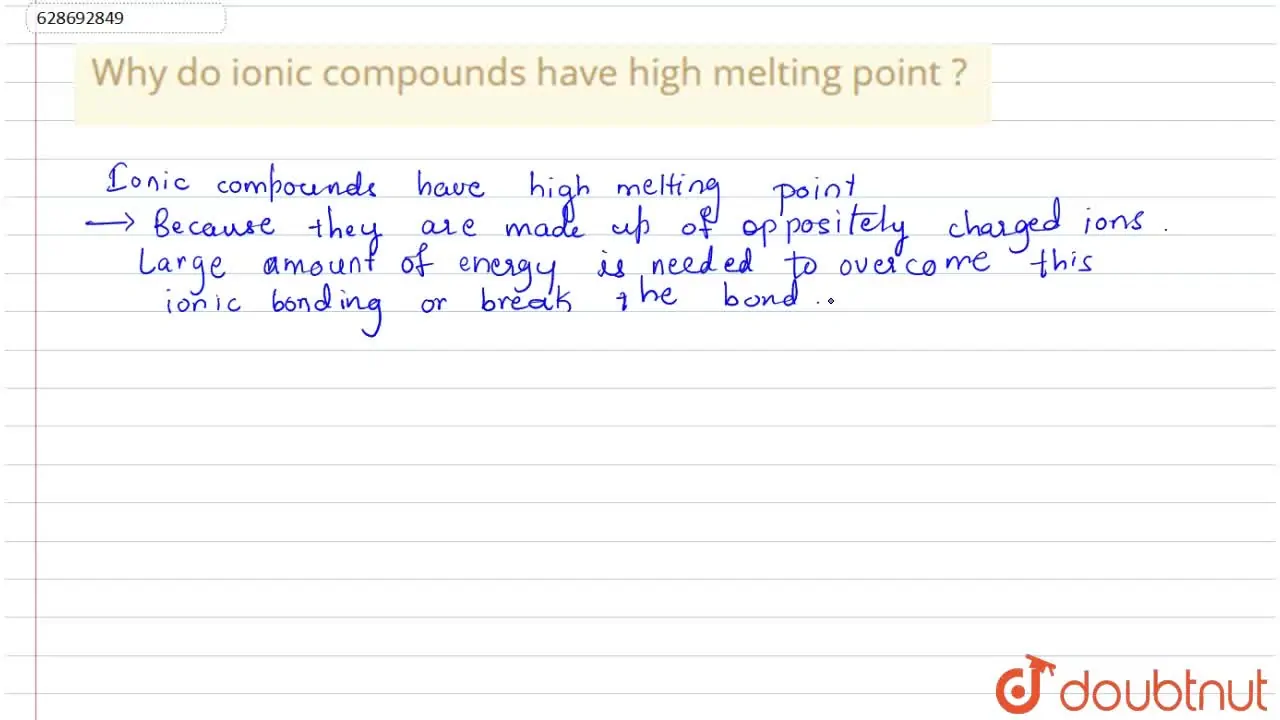 628692849
Why do ionic compounds have high melting point ?
Ionic compounds have high melting point
→ Because they are made up of oppositely charged ions.
Large amount of energy is needed to overcome this
ionic bonding or break the bond.
doubtnut